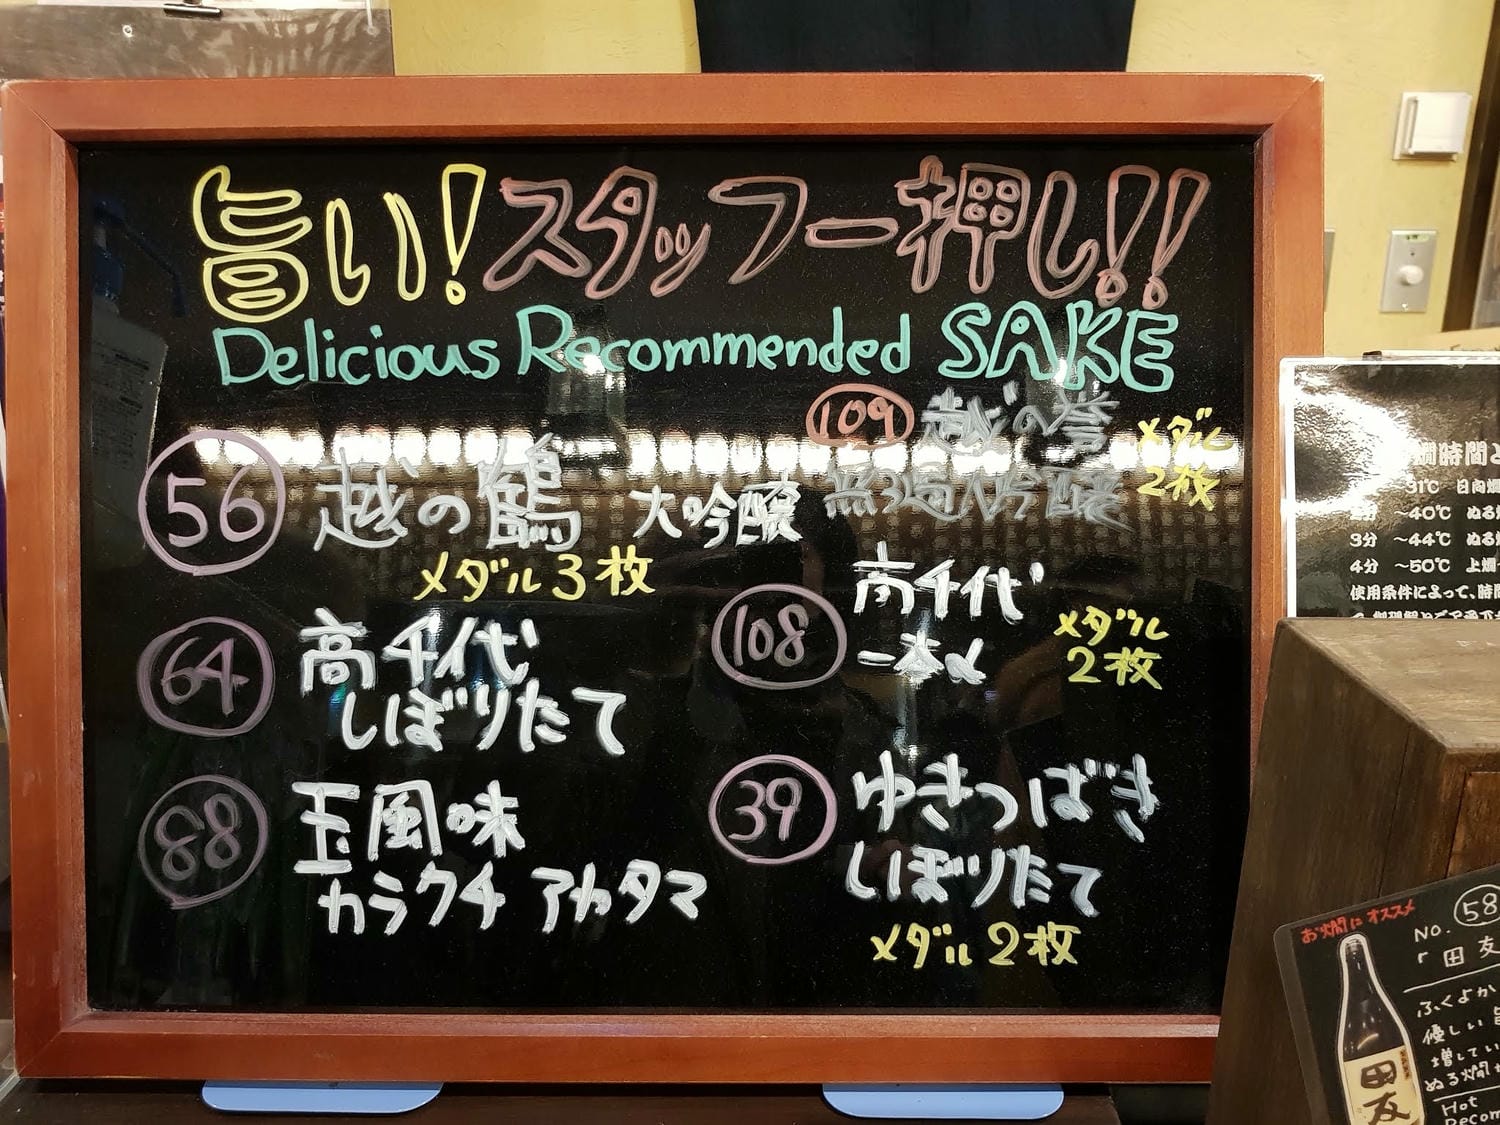 旨い!スタッフ一押し!!
Delicious Recommended SAKE
109 越の誉 メダル
無濾過大吟醸 2枚
56 越の鶴 大吟醸
メダル3枚
64 高千代
しぼりたて
88 玉風味
カラクチ アカタマ
108 高千代
一本〆
メダル
2枚
39 ゆきつばき
しぼりたて
メダル2枚
燗時間と
~31℃ 日向燗
~40℃ ぬる
3分 ~44℃ ぬる
4分 ~50℃ 上燗
使用条件によって、時間
お燗にオススメ
NO. 58
「田友
ふくよか
優しい旨
増してい
ぬる燗
Hot
Recom
田友